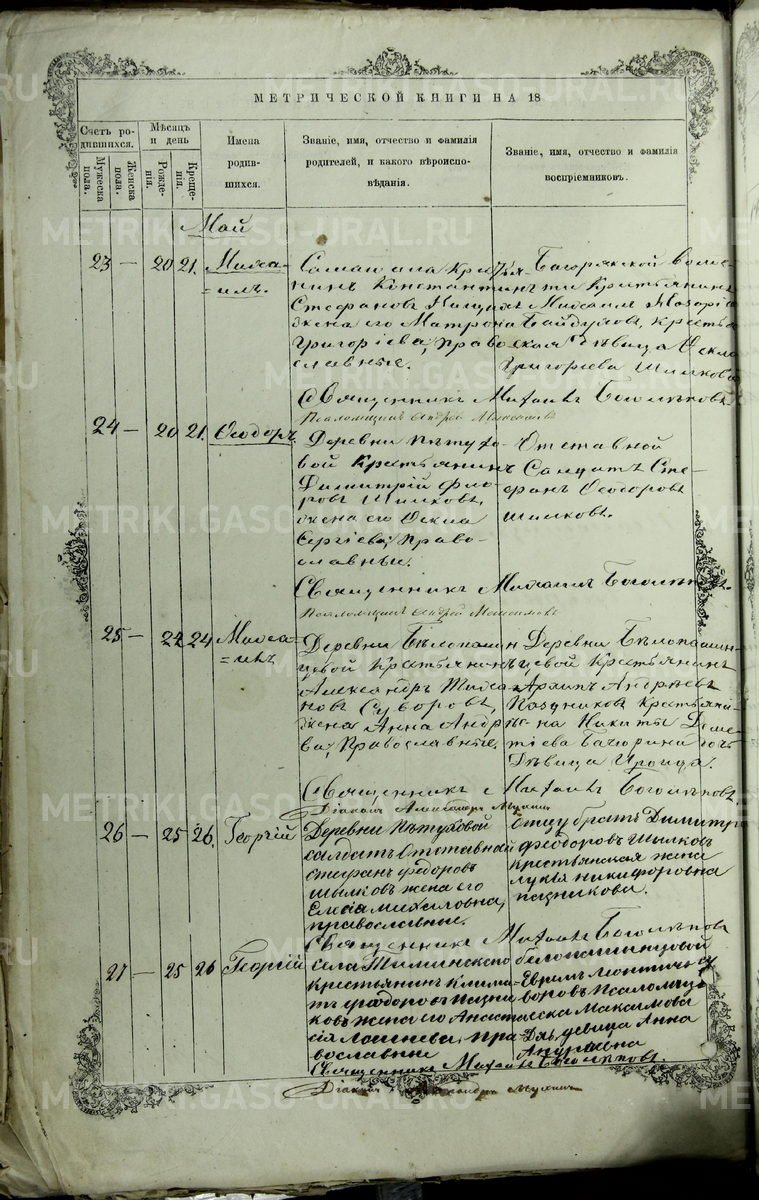 МЕТРИЧЕСКОЙ КНИГИ НА 18
Счетъ ро-
дившихся.
Мужеска
пола.
Женска
пола.
Мѣсяцъ
и день
Рожде-
нія.
Креще-
нія.
Имена
родив-
шихся.
Званіе, имя, отчество и фамилія
родителей, и какого вѣроиспо-
вѣданія.
Званіе, имя, отчество и фамилія
воспріемниковъ.
Май
23 — 20 21. Миха-
=илъ.
Крестья-
нинъ Константинъ
Стефановъ
жена его Матрона
Григоріева, право-
славные.
Багарякской воло-
сти Крестьянинъ
Михаилъ
Байдуловъ, Кресть-
ская дѣвица Ѳекла
Григорьева Шилкова
Священникъ Михаилъ Боголѣповъ.
Псаломщикъ Андрей Максимовъ
24 — 20 21. Ѳеодоръ.
Деревни Пѣтухо-
вой Крестьянинъ
Димитрій Фло-
ровъ Шилковъ,
жена его Ѳекла
Сергіева, Право-
славные.
Отставной
Солдатъ Сте-
фанъ Ѳеодоровъ
Шилковъ.
Священникъ Михаилъ Боголѣповъ.
Псаломщикъ Андрей Максимовъ
25 — 22 24 Миха-
=илъ
Деревни Бѣлопашин-
цевой Крестьянинъ
Александръ Михай-
новъ Суворовъ,
жена Анна Андрѣе-
ва, Православные.
Деревни Бѣлопашин-
цевой Крестьянинъ
Архипъ Андрѣевъ
Пазниковъ Крестьяни-
на Никиты Деме-
тіева Бачурина дочь
Дѣвица Ироида.
Священникъ Михаилъ Боголѣповъ.
Діаконъ Александръ Мухинъ
26 — 25 26. Георгій
Деревни Пѣтуховой
солдатъ Отставной
стефанъ федоровъ
шылковъ жена его
михаиловна,
православные.
Отцу братъ Димитрій
феодоровъ Шылковъ
крестьянская жена
лукья никифоровна
пазникова.
Священникъ Михаилъ Боголѣповъ
27 — 25 26 Георгій
села Тиминскаго
крестьянинъ Клима-
тъ феодоровъ Пазни-
ковъ жена его Анаста-
сія пра-
вославные
белопашинцовой
Ефримъ леонтичь су
воровъ Псаломщи-
еска Максимова
дѣвица Анна
Андреева
Священникъ Михаилъ Боголѣповъ.
Діаконъ Александръ Мухинъ
METRIKI.GASO-URAL.RU